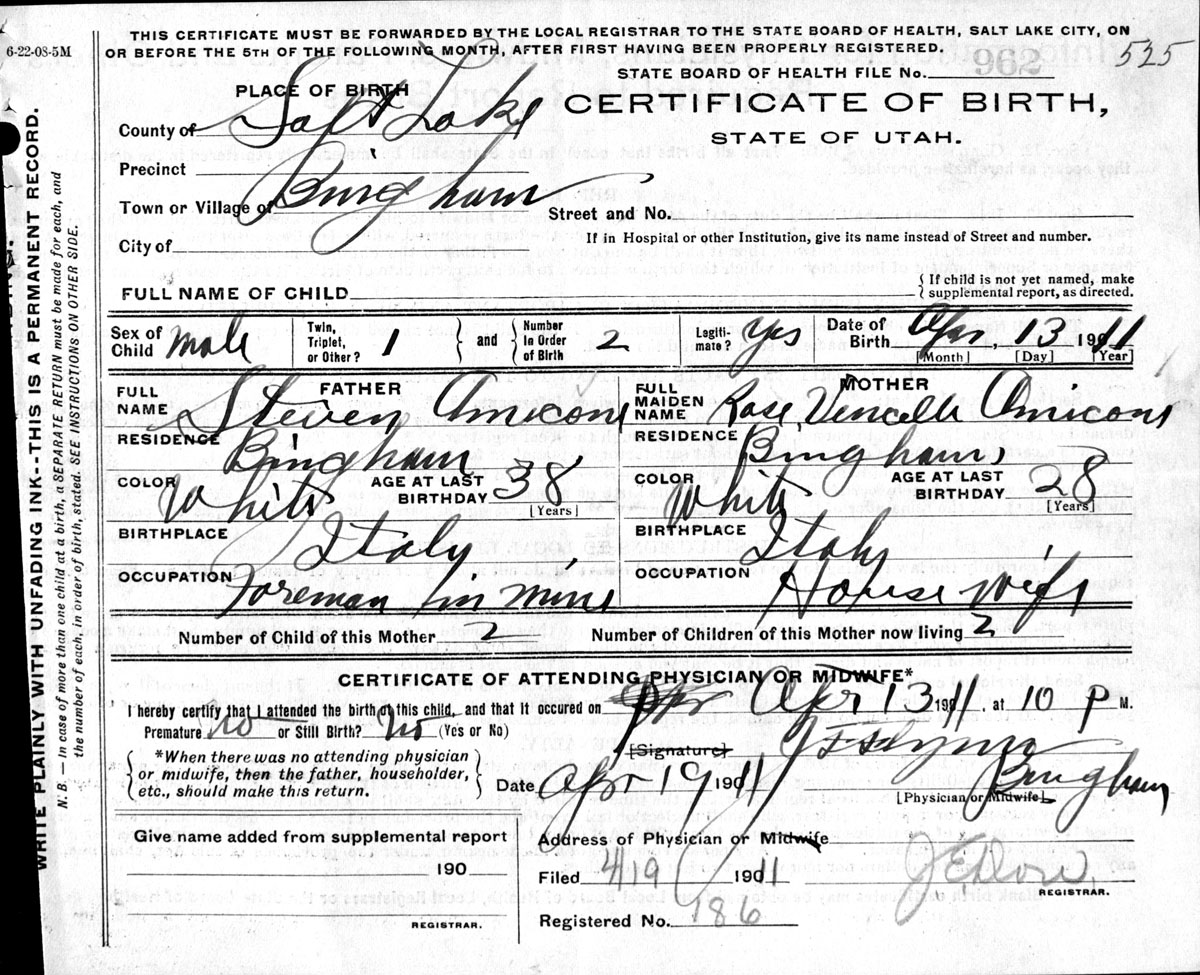 6-22-08-5M
THIS CERTIFICATE MUST BE FORWARDED BY THE LOCAL REGISTRAR TO THE STATE BOARD OF HEALTH, SALT LAKE CITY, ON
OR BEFORE THE 5TH OF THE FOLLOWING MONTH, AFTER FIRST HAVING BEEN PROPERLY REGISTERED.
525
STATE BOARD OF HEALTH FILE No.
962
PLACE OF BIRTH
CERTIFICATE OF BIRTH,
STATE OF UTAH.
County of Salt Lake
Precinct
Town or Village of Bingham
Street and No.
City of
If in Hospital or other Institution, give its name instead of Street and number.
FULL NAME OF CHILD
{ If child is not yet named, make
supplemental report, as directed.
Sex of Child male
Twin, Triplet, or Other? 1 } and { Number In Order of Birth 2
Legiti-mate? Yes
Date of Birth Apr 13 1911
[Month] [Day] [Year]
FATHER
FULL NAME Steven Amicone
RESIDENCE Bingham
COLOR White
AGE AT LAST BIRTHDAY 38
[Years]
BIRTHPLACE Italy
OCCUPATION Foreman in mine
MOTHER
FULL MAIDEN NAME Rose Amicone
RESIDENCE Bingham
COLOR White
AGE AT LAST BIRTHDAY 28
[Years]
BIRTHPLACE Italy
OCCUPATION House Wife
Number of Child of this Mother 2
Number of Children of this Mother now living 2
CERTIFICATE OF ATTENDING PHYSICIAN OR MIDWIFE*
I hereby certify that I attended the birth of this child, and that it occured on Apr 13 1911, at 10 P M.
Premature No or Still Birth? No (Yes or No)
[Signature]
{ *When there was no attending physician
or midwife, then the father, householder,
etc., should make this return. }
Date Apr 19 1911
Bingham
[Physician or Midwife]
Give name added from supplemental report
190
REGISTRAR.
Address of Physician or Midwife
Filed 4/19/1911
REGISTRAR.
Registered No. 186
WRITE PLAINLY WITH UNFADING INK--THIS IS A PERMANENT RECORD.
N. B. — In case of more than one child at a birth, a SEPARATE RETURN must be made for each, and
the number of each, in order of birth, stated. SEE INSTRUCTIONS ON OTHER SIDE.